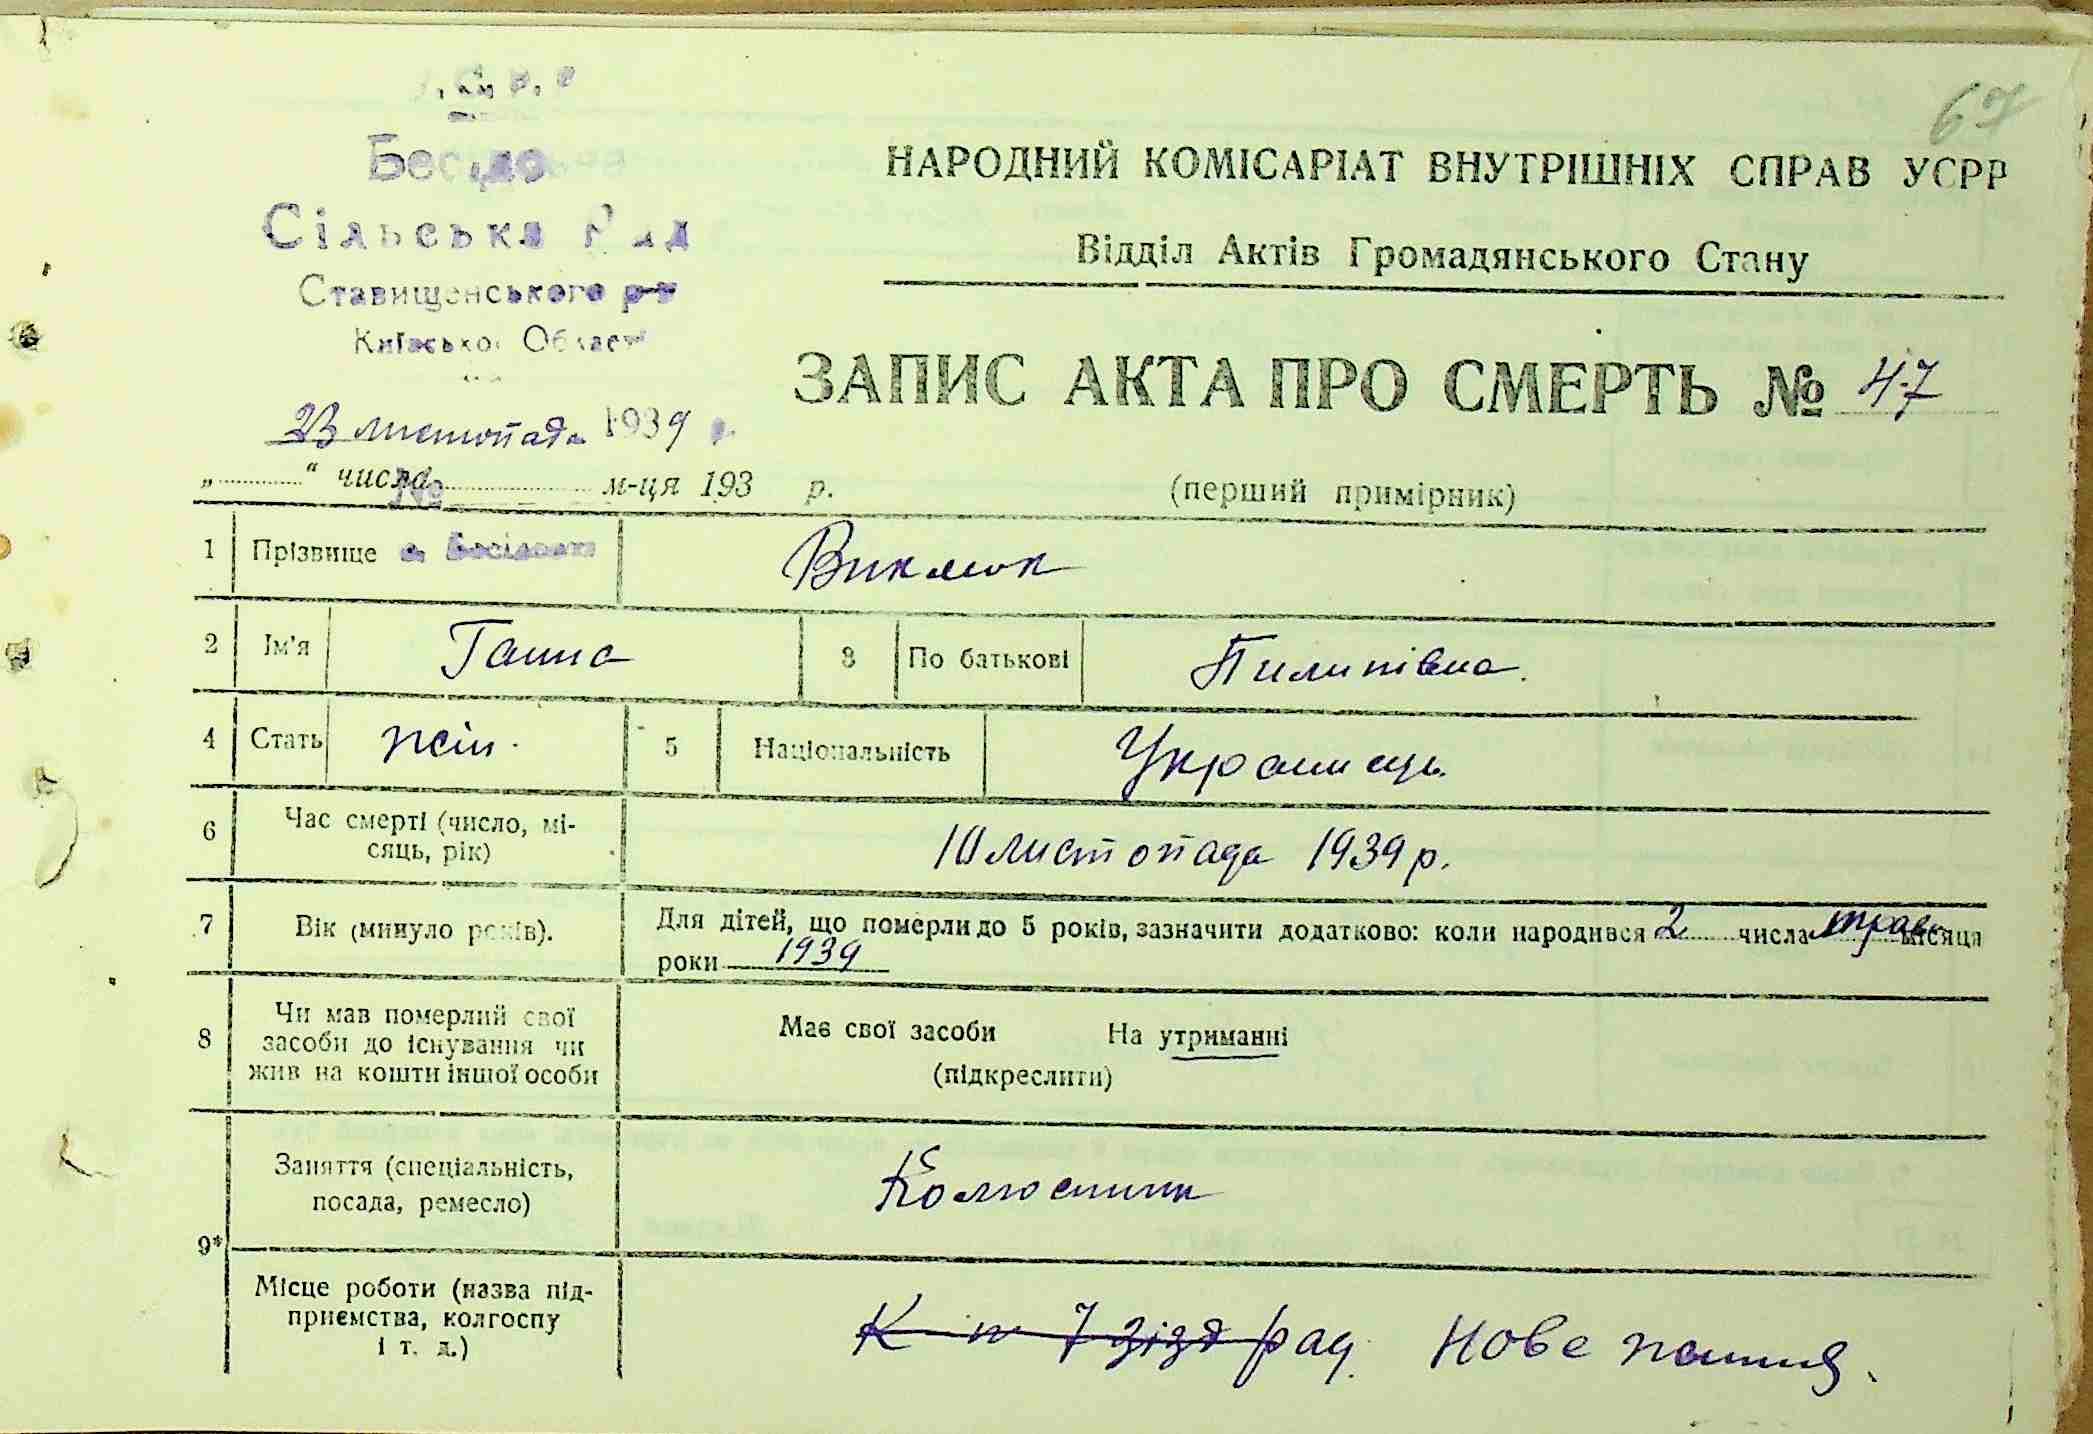 67
У.С.Р.Р
НАРОДНИЙ КОМІСАРІАТ ВНУТРІШНІХ СПРАВ УСРР
Відділ Актів Громадянського Стану
Сільська Рада
Ставищенського р-н
Київської Області
ЗАПИС АКТА ПРО СМЕРТЬ № 47
23 листопада 1939 р.
„ “ числа м-ця 193 р.
№
(перший примірник)
1 Прізвище Виклюк
2 Ім'я Ганна 3 По батькові Пилипівна.
4 Стать жін. 5 Національність Українець
6 Час смерті (число, мі-
сяць, рік) 10 листопада 1939 р.
7 Вік (минуло років). Для дітей, що померли до 5 років, зазначити додатково: коли народився 2 числа трав місяця
роки 1939
8 Чи мав померлий свої
засоби до існування чи
жив на кошти іншої особи
Має свої засоби На утриманні
(підкреслити)
9* Заняття (спеціальність,
посада, ремесло)
Місце роботи (назва під-
приємства, колгоспу
і т. д.)
К-п 7 зізд рад. Нове життя.